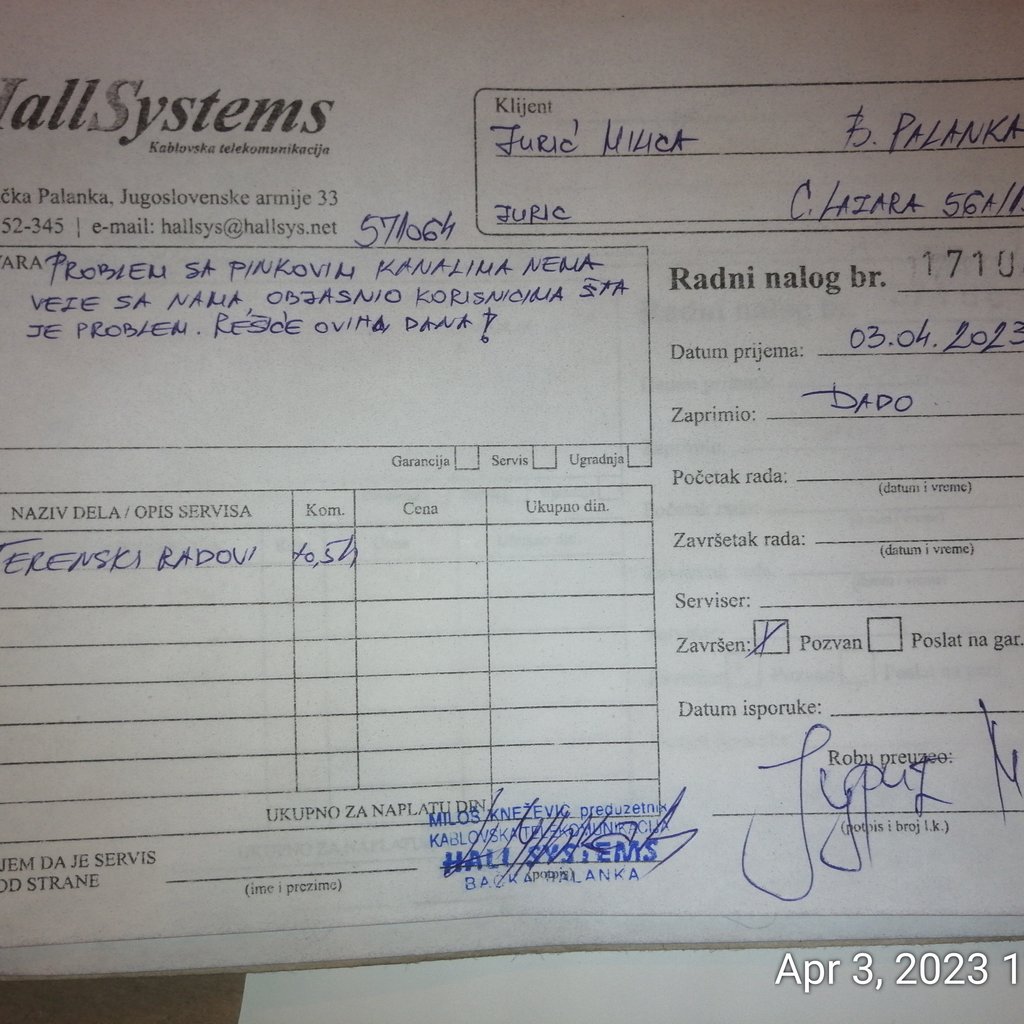 HallSystems
Kablovska telekomunikacija
čka Palanka, Jugoslovenske armije 33
52-345 | e-mail: hallsys@hallsys.net
571064
Klijent
JURIĆ MILICA B. PALANKA
JURIC C. LAZARA 56A/1
VARA PROBLEM SA PINKOVIM KANALIMA NEMA
VEZE SA NAMA, OBJASNIO KORISNICIMA ŠTA
JE PROBLEM. REŠIĆE OVIH DANA!
Garancija Servis Ugradnja
Radni nalog br. 1710
Datum prijema: 03.04.2023
Zaprimio: DADO
Početak rada:
(datum i vreme)
Završetak rada:
(datum i vreme)
Serviser:
Završen: Pozvan Poslat na gar.
Datum isporuke:
Robu preuzeo:
(potpis i broj l.k.)
NAZIV DELA / OPIS SERVISA Kom. Cena Ukupno din.
TERENSKI RADOVI 0,5h
UKUPNO ZA NAPLATU DIN
MILOŠ KNEŽEVIĆ preduzetnik
KABLOVSKA TELEKOMUNIKACIJA
HALL SYSTEMS
BAČKA PALANKA
(potpis)
JEM DA JE SERVIS
OD STRANE
(ime i prezime)
Apr 3, 2023 1